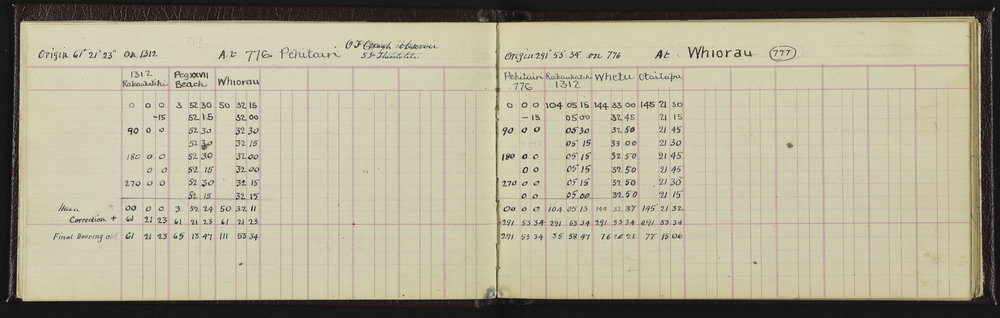 Origin 61° 21' 23" on 1312 At 776 Pehitairi Observer
1312 Peg XXVII Whiorau
Rakaukotihi Beach
0 0 0 3 52 30 50 32 15
-15 52 15 32 00
90 0 0 52 30 32 30
52 30 32 15
180 0 0 52 30 32 00
0 0 52 15 32 00
270 0 0 52 30 32 15
52 15 32 15
Mean 00 0 0 3 52 24 50 32 11
Correction + 61 21 23 61 21 23 61 21 23
Final Bearing 61 21 23 65 13 47 111 53 34
Origin 291° 53' 34" on 776 At Whiorau 777
Pehitairi Rakaukotihi Whetu Otaitapu
776 1312
0 0 0 104 05 15 144 33 00 145 21 30
-15 05 00 32 45 21 15
90 0 0 05 30 32 50 21 45
-15 05 15 33 00 21 30
180 0 0 05 15 32 50 21 45
0 0 05 15 32 50 21 45
270 0 0 05 15 32 50 21 30
0 0 05 00 32 50 21 15
00 0 0 104 05 13 144 32 37 145 21 32
291 53 34 291 53 34 291 53 34 291 53 34
291 53 34 35 58 47 76 26 21 77 15 06